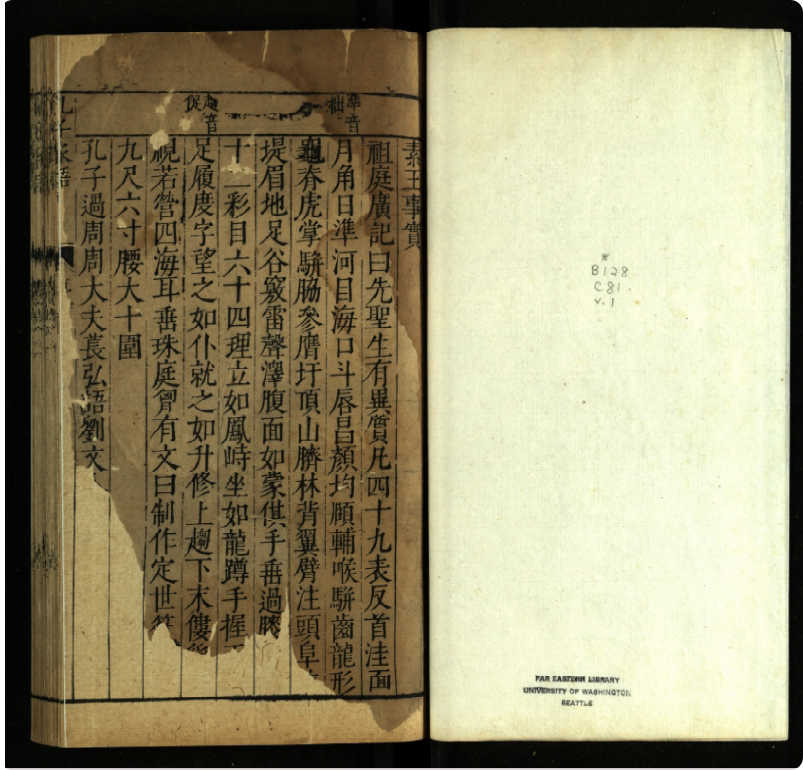 素王事實
祖庭廣記曰先聖生有異質凡四十九表反首洼面
月角日準河目海口斗唇昌顏均頤輔喉駢齒龍形
龜脊虎掌駢脇參膺圩頂山臍林背翼臂注頭阜
堤眉地足谷竅雷聲澤腹面如蒙倛手垂過膝
十二彩目六十四理立如鳳峙坐如龍蹲手握
足履度字望之如仆就之如升修上趨下末僂
視若營四海耳垂珠庭胷有文曰制作定世符
九尺六寸腰大十圍
孔子過周周大夫萇弘語劉文
孔子家語
準音
趨音
促
*
B128
C81
v.1
FAR EASTERN LIBRARY
UNIVERSITY OF WASHINGTON
SEATTLE